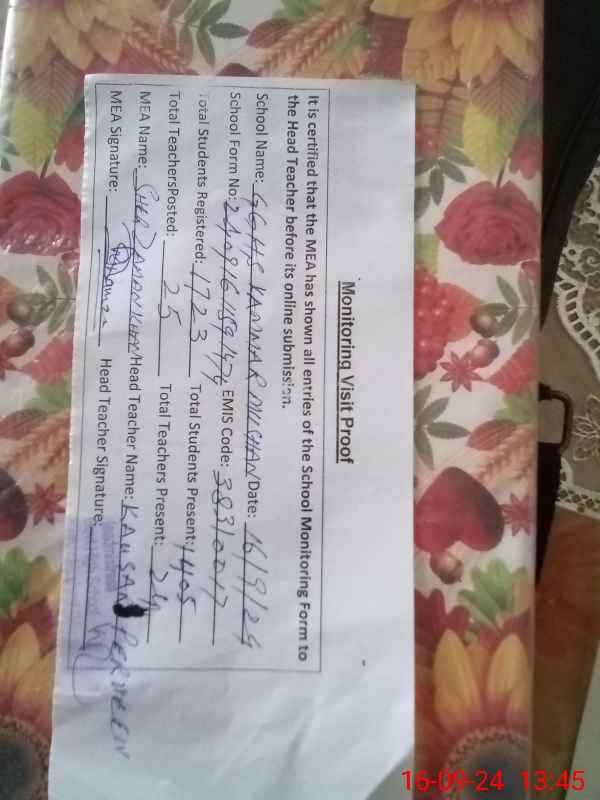 Monitoring Visit Proof
It is certified that the MEA has shown all entries of the School Monitoring Form to
the Head Teacher before its online submission.
School Name: GGHS KAMMAR MUSHANI Date: 16/9/24
School Form No: EMIS Code: 38310017
Total Students Registered: 1723 Total Students Present: 1405
Total TeachersPosted: 25 Total Teachers Present: 24
MEA Name: SHER ZAMAN KHAN Head Teacher Name: KAUSAR PERVEEN
MEA Signature: Head Teacher Signature:
16-09-24 13:45